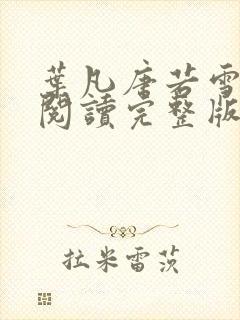 葉凡唐若雪
閱讀完整版
拉米雷茨